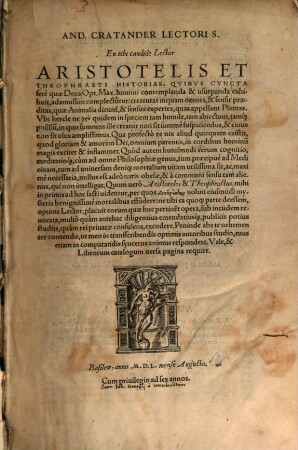 AND. CRATANDER LECTORI S.
En tibi candide Lector
ARISTOTELIS ET
THEOPHRASTI HISTORIAS, QVIBVS CVNCTA
ferè quæ Deus Opt. Max. homini contemplanda & usurpanda exhi
buit, adamussim complectuntur: creaturas inquam omnes, & sensu præ
ditas, quæ Animalia dicunt, & sensus expertes, quas appellant Plantas.
Vbi hercle ne γρὺ quidem in speciem tam humile, tam abiectum, tamq́;
pusillū, in quo summus ille creator non sit summè suspiciendus, & cuius
non sit usus amplissimus. Qua profectò re uix aliud quicquam exstitit,
quod gloriam & amorem Dei, omnium parentis, in cordibus hominū
magis excitet & instauret. Quòd autem huiusmodi rerum cognitio,
meditatioq́;, cùm ad omne Philosophiæ genus, tum præcipuè ad Medi
cinam, tum ad uniuersum deniq; mortalium uitam utilissima sit, ac maxi
mè necessaria, nullus est adeò naris obesæ, & à communi sensu tam alie-
nus, qui non intelligat. Quum uerò Aristoteles & Theophrastus, mihi
in primis ad hoc facti uideantur, per quos uoluit eiusmodi my
steria benignissimè mortalibus effundere: ne tibi ea quoq; parte deessem,
optime Lector, placuit eorum quæ huc pertinēt opera, sub incudem re-
uocata, multò quàm antehac diligentius emendatiusq́;, publicis potius
studijs, quàm rei priuatæ consulens, excudere. Proinde abs te uehemen
ter contendo, ut meo in transscribendis optimis autoribus studio, tuus
etiam in computando syncerus animus respondeat. Vale, &
Librorum catalogum uersa pagina require.
Basileæ, anno M. D. L. mense Augusto.
Cum priuilegio ad sex annos.